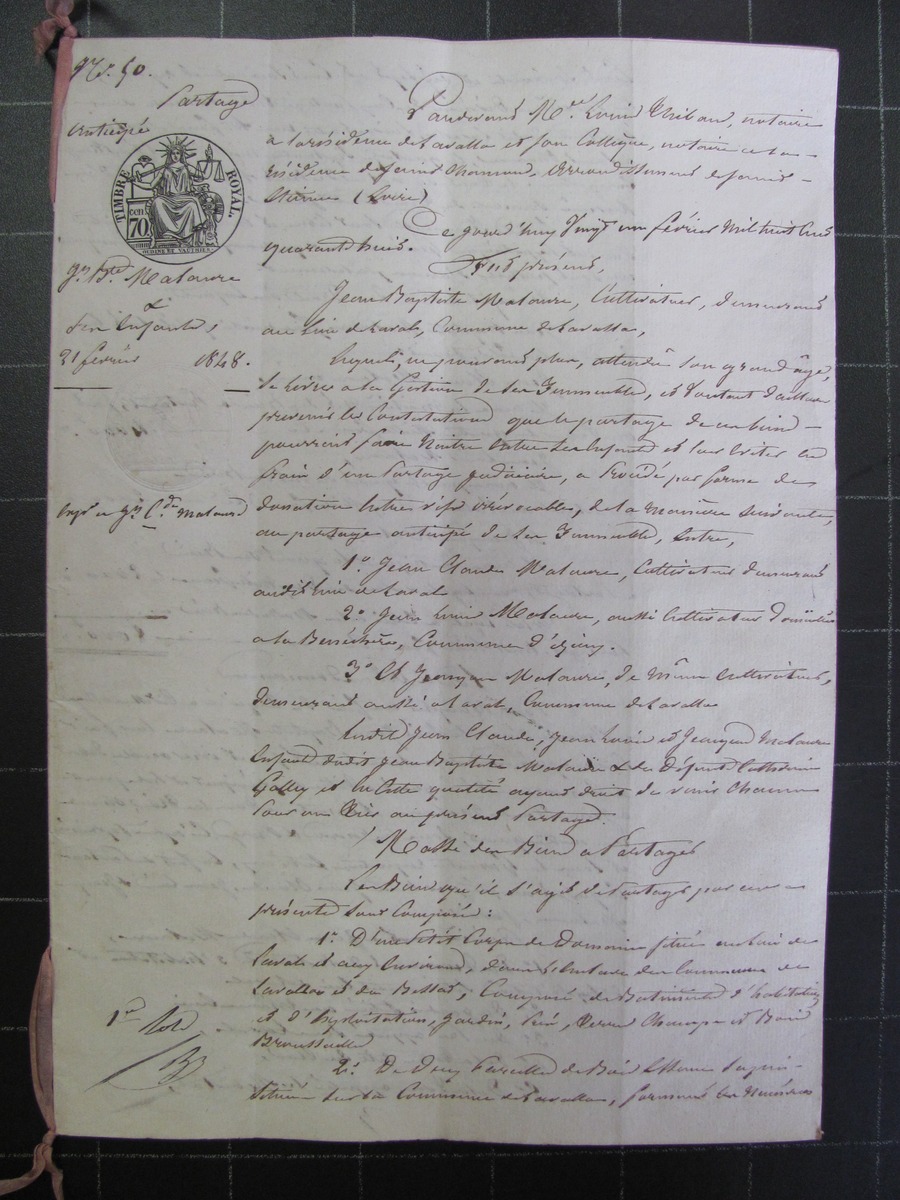 No. 50.
Partage
anticipé
TIMBRE ROYAL
CEN
70
gn Bte Mataure
&
ses Enfants,
21 février 1848.
Expn a gn Cde Mataure
1er Role
Pardevant Me Louis Thibaud, notaire
a la résidence de Lavalla et son Collègue, notaire a la
résidence de Saint Chamond, arrondissement de Saint
Etienne (Loire)
Ce jourd'huy Vingt un février Mil huit cent
quarante huit.
Fut présent,
Jean Baptiste Mataure, Cultivateur, demeurant
au lieu de Laval, Commune de Lavalla,
Lequel, ne pouvant plus, attendu son grand âge,
se livrer a la Gestion de ses Immeubles, et voulant d'ailleurs
prévenir les Contestations que le partage de ses biens
pourrait faire Naitre Entre ses Enfants et leur Eviter les
frais d'un Partage judiciaire, a Procédé par forme de
donation Entre vifs irrévocable, de la manière suivante,
au partage anticipé de ses Immeubles, Entre,
1o Jean Claude Mataure, Cultivateur demeurant
audit lieu de Laval
2o Jean Louis Mataure, aussi Cultivateur domicilié
a la Commune d'
3o Et Mataure, de même Cultivateur,
demeurant aussi a Laval, Commune de Lavalla
Lesdits Jean Claude, Jean Louis et Mataure
Enfants dudit Jean Baptiste Mataure & de Défunte Catherine
et en Cette qualité ayant droit de venir Chacun
Pour un Tiers au présent Partage.
Masse des Biens a Partager
Les Biens qu'il s'agit de Partager par ces
présentes sont Composés:
1o D'un Petit Corps de Domaine situé au lieu de
Laval et aux Environs, dans l'étendue des Communes de
Lavalla et de Composé de Batiments d'habitation
et D'Exploitation, Jardin, Pré, Terre Champs et Bois
Broussailles
2o De Deux Parcelles de Bois Essence Sapin
Situées sur la Commune de Lavalla, formant les Numéros